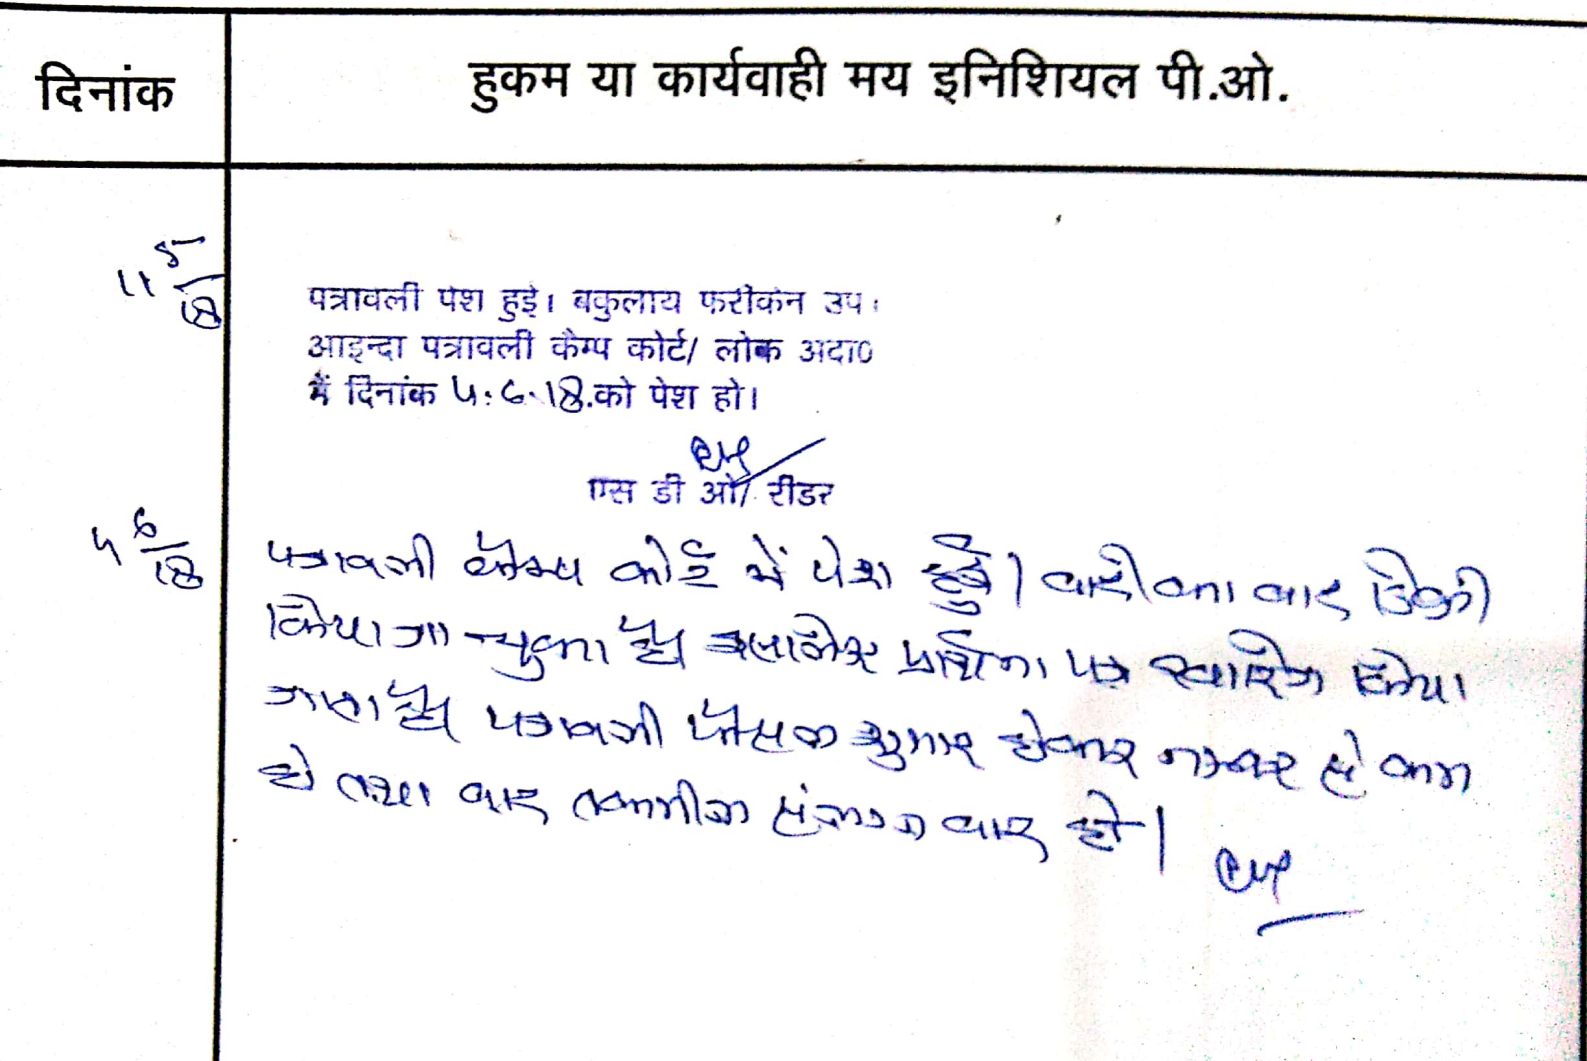 दिनांक
हुकम या कार्यवाही मय इनिशियल पी.ओ.
11 5/18
पत्रावली पेश हुई। बकुलाय फरीकेन उप।
आइन्दा पत्रावली कैम्प कोर्ट/ लोक अदा०
में दिनांक 5.6.18.को पेश हो।
एस डी ओ/ रीडर
5 6/18
पत्रावली कैम्प कोर्ट में पेश हुई। वादी का वाद डिक्री
किया जा चुका है इसलिए प्रार्थना पत्र खारिज किया
जाता है पत्रावली फैसल शुमार होकर नम्बर से कम
हो तथा बाद तकमील संलग्न वाद हो।